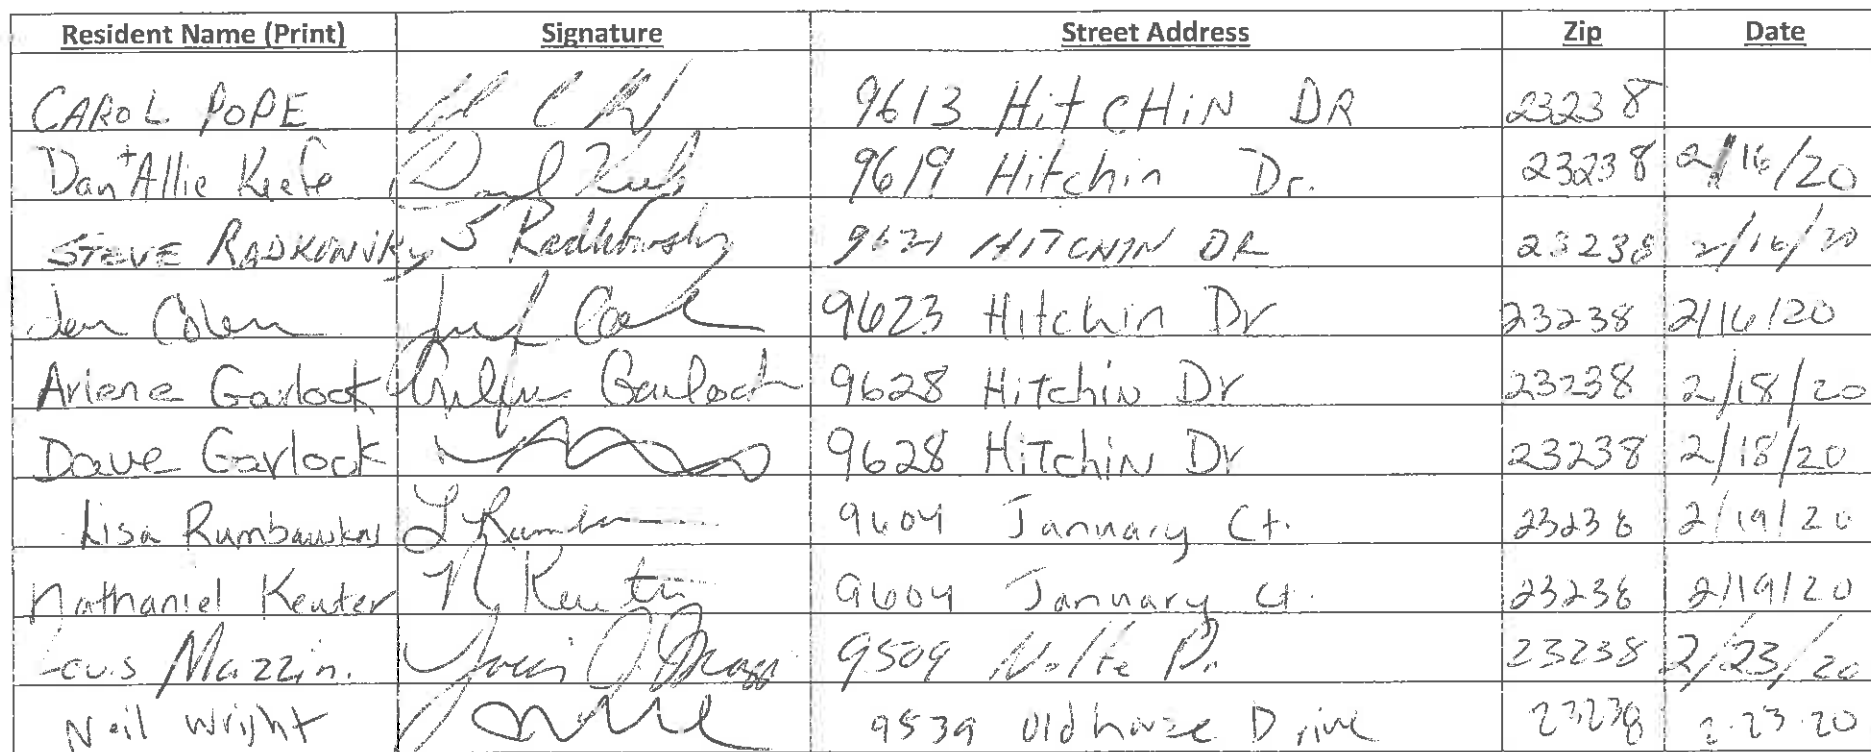 Resident Name (Print) Signature Street Address Zip Date
CAROL POPE 9613 HitCHiN DR 23238
Dan + Allie Keefe 9619 Hitchin Dr. 23238 2/16/20
STEVE RADKOWSKY S Radkowsky 9621 HITCHIN DR 23238 2/16/20
Jen Colen 9623 Hitchin Dr 23238 2/16/20
Arlene Garlock Garlock 9628 Hitchin Dr 23238 2/18/20
Dave Garlock 9628 HiTchin Dr 23238 2/18/20
Lisa 9604 January Ct. 23238 2/19/20
Nathaniel Keuter N Keuter 9604 January Ct. 23238 2/19/20
Louis Mazzin. Louis 9509 Nolte 23238 2/23/20
Neil Wright 9539 Oldhouse Drive 23238 2.23.20